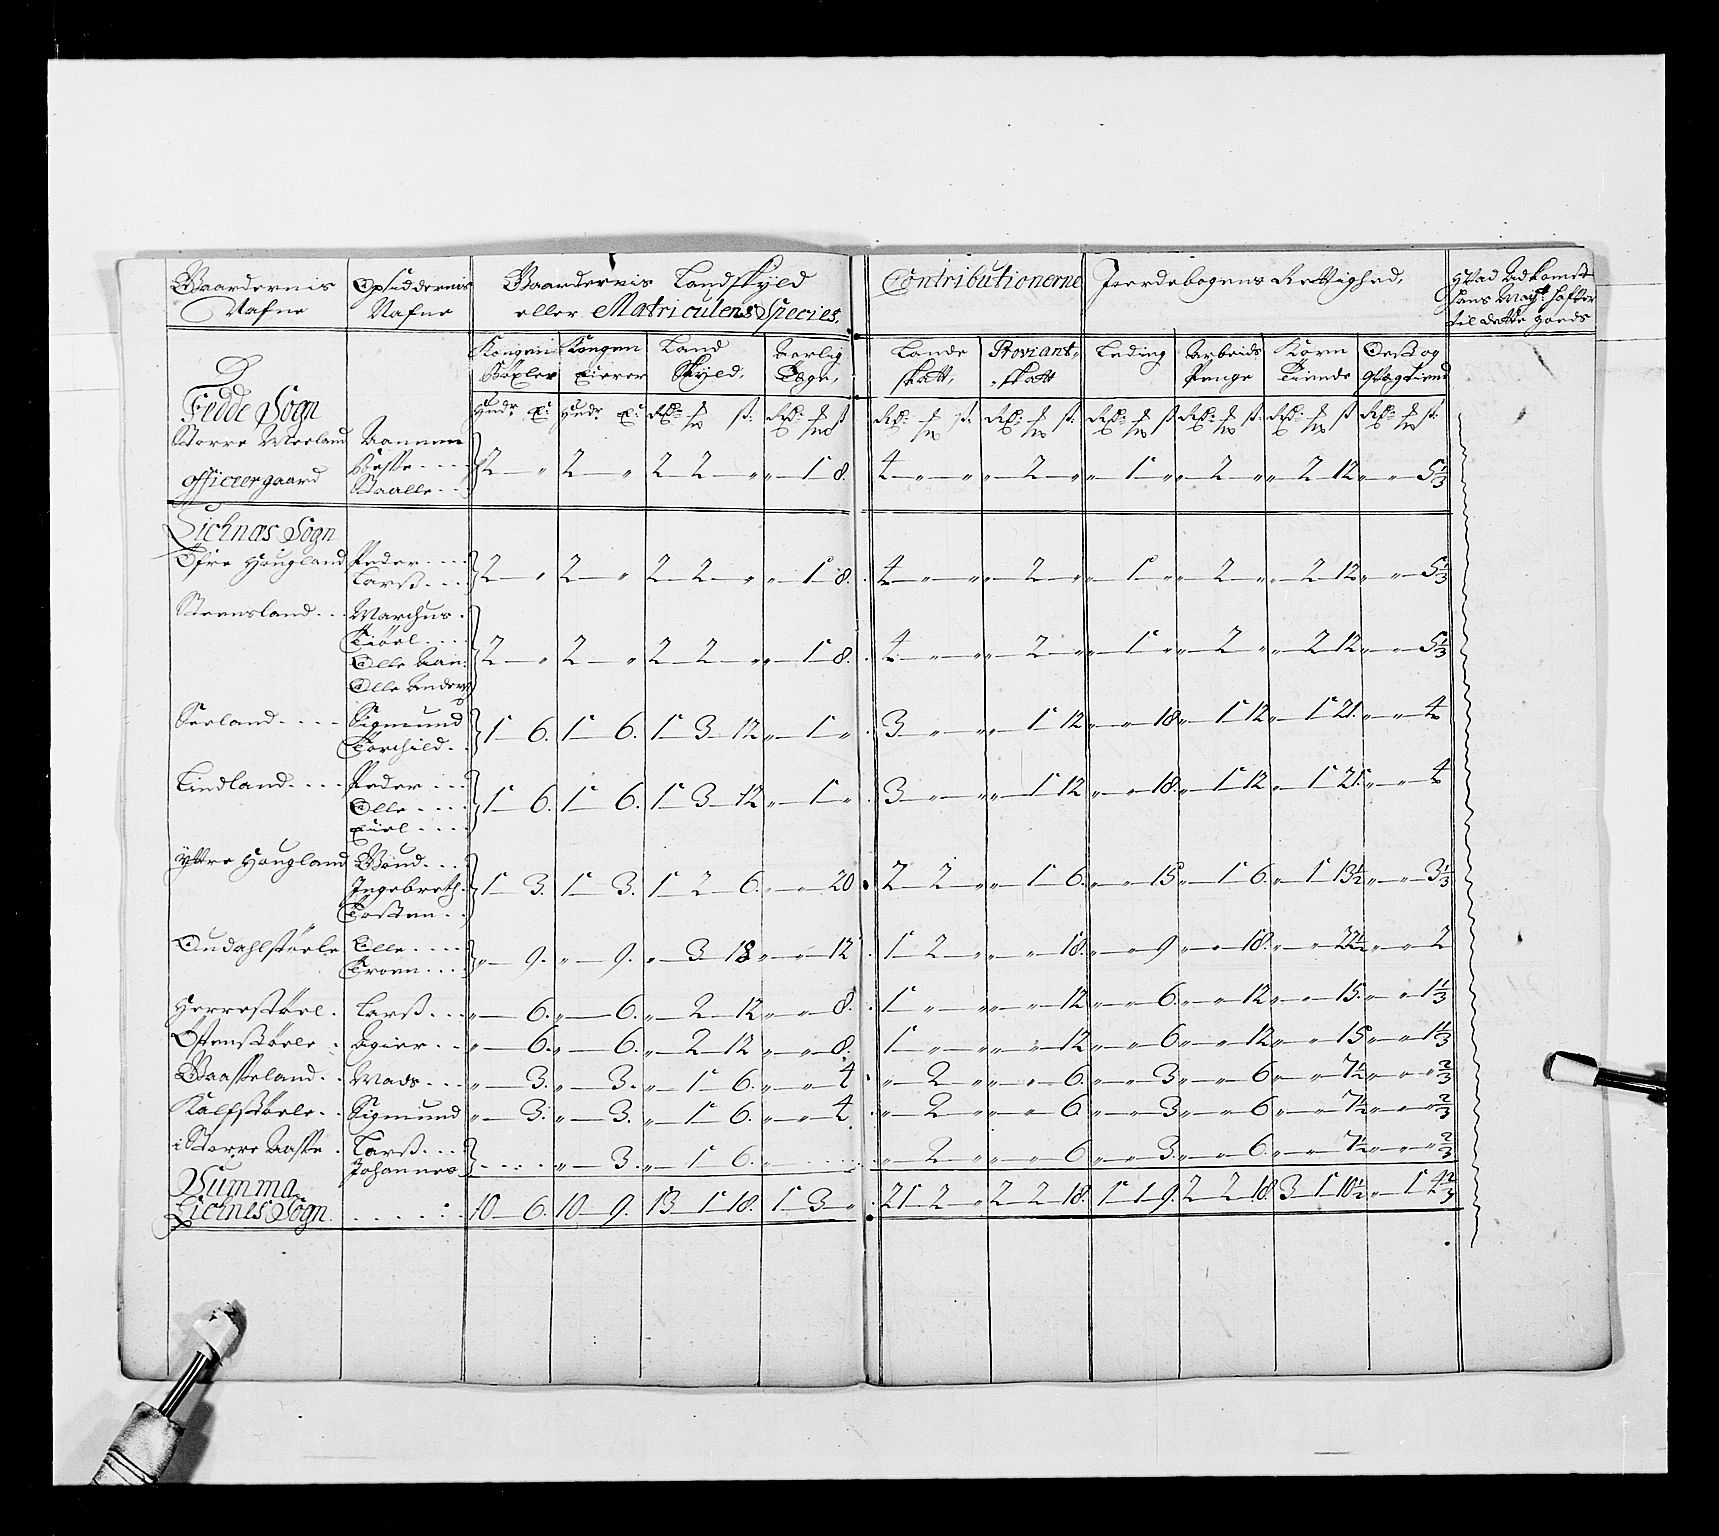 Gaardernis Nafne | Opsiddernis Nafne | Gaardernis Landskyld eller Matriculens Species. | Contributionerne | Jordebogens Rettighed, | Hvad Adkomst hans Mayst: hafver til dette goeds
Kongen Böxler | Kongen Eierer | Land Skyld, | Aarlig Tage, | Lande skatt, | Proviant skatt | Leding | Arbeids Penge | Korn Tiende | Oest og Qvegtiend
Fedde Sogn
Större Meeland officeergaard | Aamun Besse Staalle | 2 — „ | 2 — „ | 2 2 „ | „ 1 8. | 4 „ „ | „ 2 „ | „ 1 „ | „ 2 „ | „ 2 12 | „ „ 5 1/3
Lichnæs Sogn
Öfre Hougland | Peder Larss | 2 — „ | 2 — „ | 2 2 „ | „ 1 8. | 4 „ „ | „ 2 „ | „ 1 „ | „ 2 „ | „ 2 12 | „ „ 5 1/3
Steensland | Marchus Kiöel Olle Aan: Olle Anders | 2 — „ | 2 — „ | 2 2 „ | „ 1 8. | 4 „ „ | „ 2 „ | „ 1 „ | „ 2 „ | „ 2 12 | „ „ 5 1/3
Seeland | Sigmund Torchild | 1 6. | 1 6. | 1 3 12 | „ 1 „ | 3 „ „ | „ 1 12 | „ „ 18 | „ 1 12 | „ 1 21. | „ „ 4
Lindland | Peder Olle | 1 6. | 1 6. | 1 3 12 | „ 1 „ | 3 „ „ | „ 1 12 | „ „ 18. | „ 1 12 | „ 1 21. | „ „ 4
Yttre Hougland | Gaud Ingebreth Tosten | 1 3. | 1 3. | 1 2 6. | „ „ 20 | 2 2 „ | „ 1 6. | „ „ 15 | „ 1 6. | „ 1 13 1/2 | „ „ 3 1/3
Oudahlstöele | Olle Troen | „ 9. | „ 9. | „ 3 18 | „ „ 12 | 1 2 „ | „ „ 18. | „ „ 9 | „ „ 18. | „ „ 22 1/2 | „ „ 2
Herrestöel | Larss | „ 6. | „ 6. | „ 2 12 | „ „ 8. | 1 „ „ | „ „ 12 | „ „ 6. | „ „ 12 | „ „ 15. | „ „ 1 1/3
Östenstöele | Agier | „ 6. | „ 6. | „ 2 12 | „ „ 8. | 1 „ „ | „ „ 12 | „ „ 6 | „ „ 12 | „ „ 15 | „ „ 1 1/3
Gaasseland | Mads | „ 3. | „ 3. | „ 1 6. | „ „ 4 | „ 2 „ | „ „ 6. | „ „ 3 | „ „ 6 | „ „ 7 1/2 | „ „ „ 2/3
Kalfstöele | Sigmund | „ 3. | „ 3. | „ 1 6. | „ „ 4 | „ 2 „ | „ „ 6 | „ „ 3 | „ „ 6 | „ „ 7 1/2 | „ „ „ 2/3
i Större Aasse | Larss Johannes | . . . . | „ 3. | „ 1 6. | „ . . . | „ 2 „ | „ „ 6 | „ „ 3. | „ „ 6. | „ „ 7 1/2 | „ „ „ 2/3
Summa Lichnes Sogn | 10 6. | 10 9. | 13 1 18. | 1 3 „ | 21 2 „ | 2 2 18. | 1 1 9. | 2 2 18 | 3 1 10 1/2 | „ 1 4 2/3